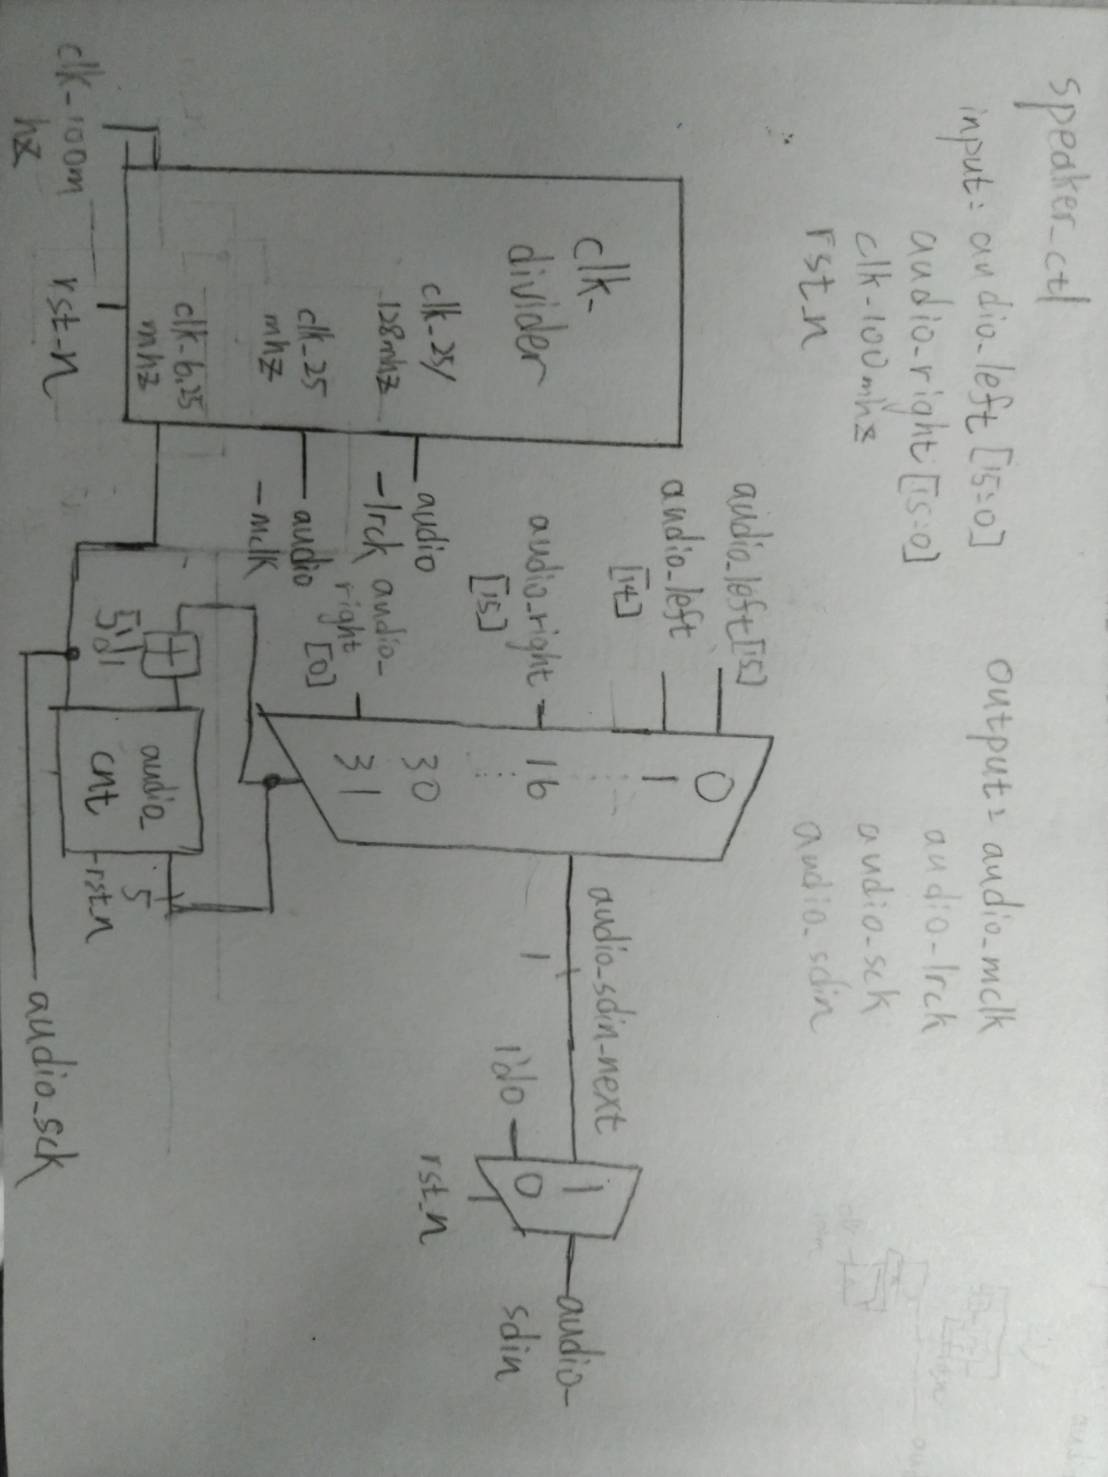 speaker_ctl
input: audio_left [15:0]
audio_right [15:0]
clk-100mhz
rst_n
output: audio_mclk
audio-lrck
audio-sck
audio_sdin
clk-
divider
clk_25/
128mhz
clk_25
mhz
clk-6.25
mhz
clk_100m
hz
rst_n
audio
-lrck
audio
-mclk
audio_left[15]
audio_left
[14]
audio_right
[15]
audio_
right
[0]
0
1
16
30
31
audio_sdin_next
1
1'd0
1
0
rst_n
audio-
sdin
5'd1
+
audio_
cnt
5
rst_n
audio_sck